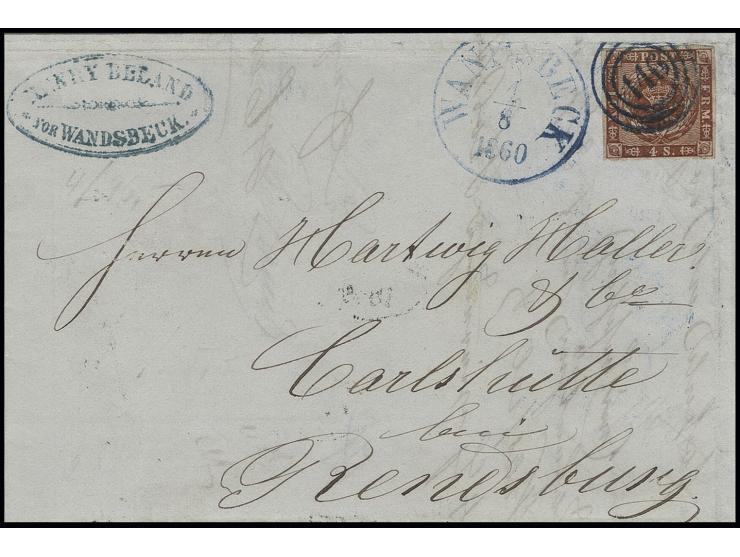 BELAND
VOR WANDSBECK
WANDSBECK
1
8
1860
POST
FRM.
4 S.
Herren Hartwig Holler
& Co
Carlshütte
bei
Rendsburg.